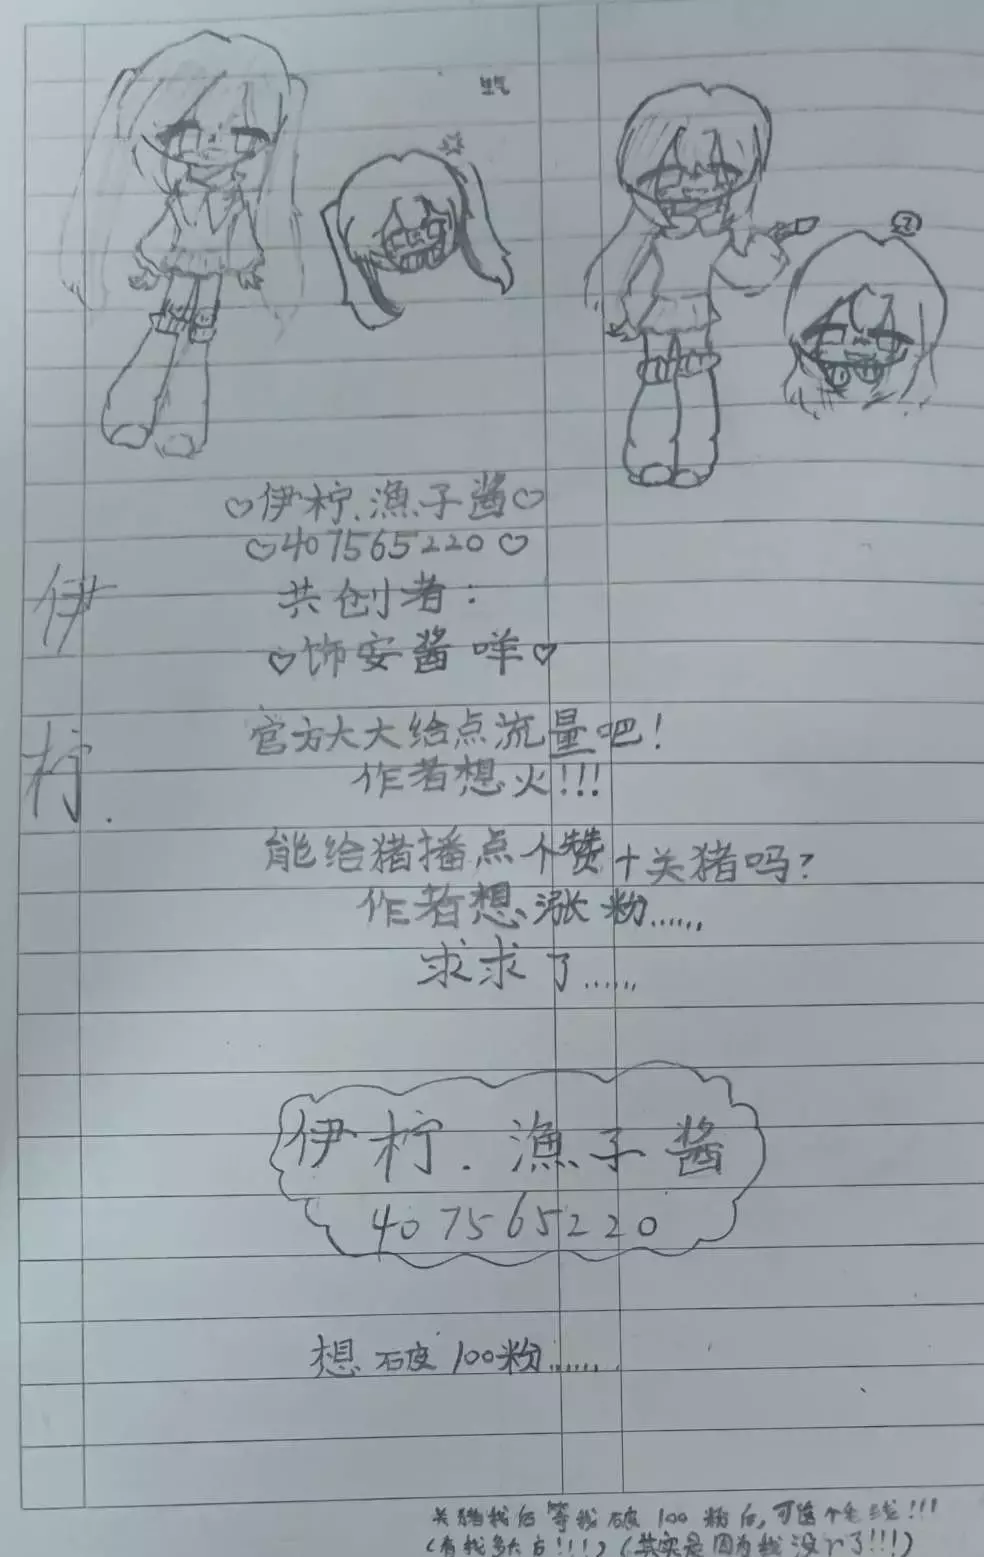 生气
?
♡伊柠.漁子酱♡
♡407565220♡
共创者：
♡饰安酱咩♡
伊柠.
官方大大给点流量吧！
作者想火!!!
能给猪播点个赞+关猪吗?
作者想涨粉......
求求了......
伊柠.漁子酱
407565220
想破100粉......
关猪我后等我破100粉后,可
(有我多大方!!!)(其实是因为我没 了!!!)